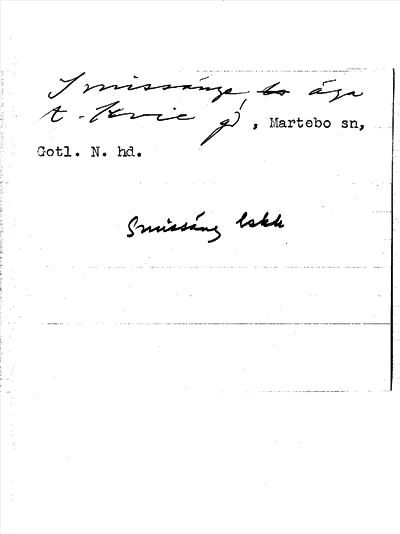 Smissänge, äga
t. Kvie gd, Martebo sn,
Gotl. N. hd.
Smissäng